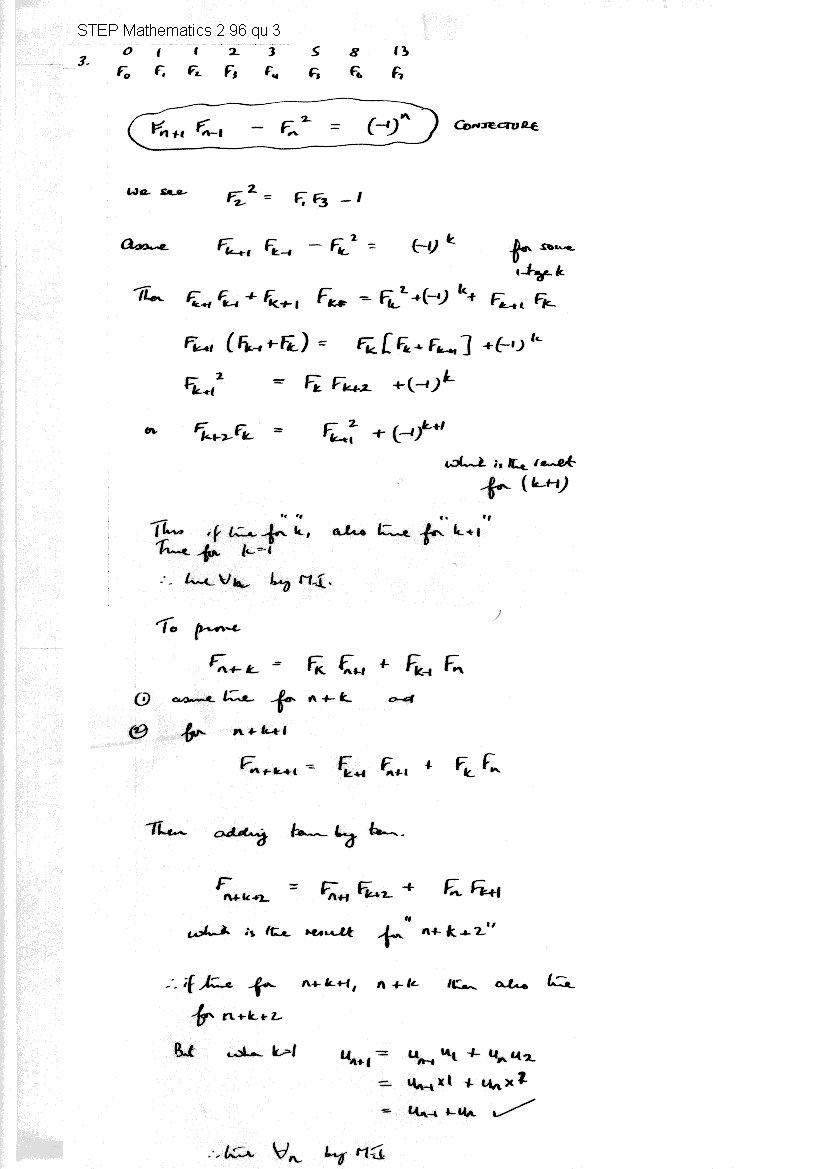 STEP Mathematics 2 96 qu 3
3. 0 1 1 2 3 5 8 13
F₀ F₁ F₂ F₃ F₄ F₅ F₆ F₇
Fₙ₊₁ Fₙ₋₁ − Fₙ² = (−1)ⁿ CONJECTURE
We see F₂² = F₁F₃ − 1
Assume Fₖ₊₁ Fₖ₋₁ − Fₖ² = (−1)ᵏ for some
integer k
Then Fₖ₊₁ Fₖ₋₁ + Fₖ₊₁ Fₖ = Fₖ² + (−1)ᵏ + Fₖ₊₁ Fₖ
Fₖ₊₁ (Fₖ₋₁ + Fₖ) = Fₖ [Fₖ + Fₖ₊₁] + (−1)ᵏ
Fₖ₊₁² = Fₖ Fₖ₊₂ + (−1)ᵏ
or Fₖ₊₂ Fₖ = Fₖ₊₁² + (−1)ᵏ⁺¹
which is the result
for (k+1)
Thus if true for "k", also true for "k+1"
True for k=1
∴ true ∀n by M.I.
To prove
Fₙ₊ₖ = Fₖ Fₙ₊₁ + Fₖ₋₁ Fₙ
① assume true for n+k and
② for n+k+1
Fₙ₊ₖ₊₁ = Fₖ₊₁ Fₙ₊₁ + Fₖ Fₙ
Then adding term by term.
Fₙ₊ₖ₊₂ = Fₙ₊₁ Fₖ₊₂ + Fₙ Fₖ₊₁
which is the result for "n+k+2"
∴ if true for n+k+1, n+k then also true
for n+k+2
But when k=1 uₙ₊₁ = uₙ₋₁ u₁ + uₙ u₂
= uₙ₋₁ × 1 + uₙ ×
= uₙ₋₁ + uₙ ✓
∴ true ∀n by M.I